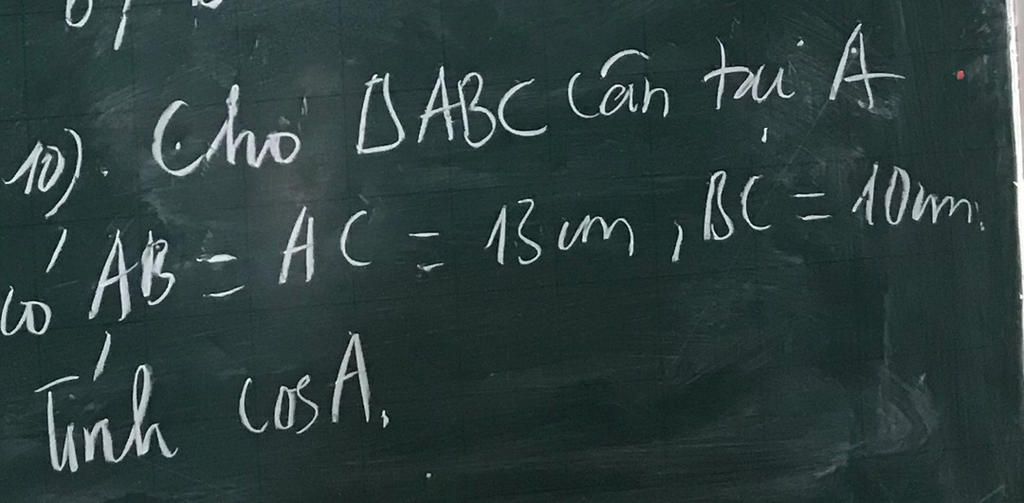 10). Cho ΔABC cân tại A
có AB = AC = 13cm, BC = 10cm.
Tính cosA.